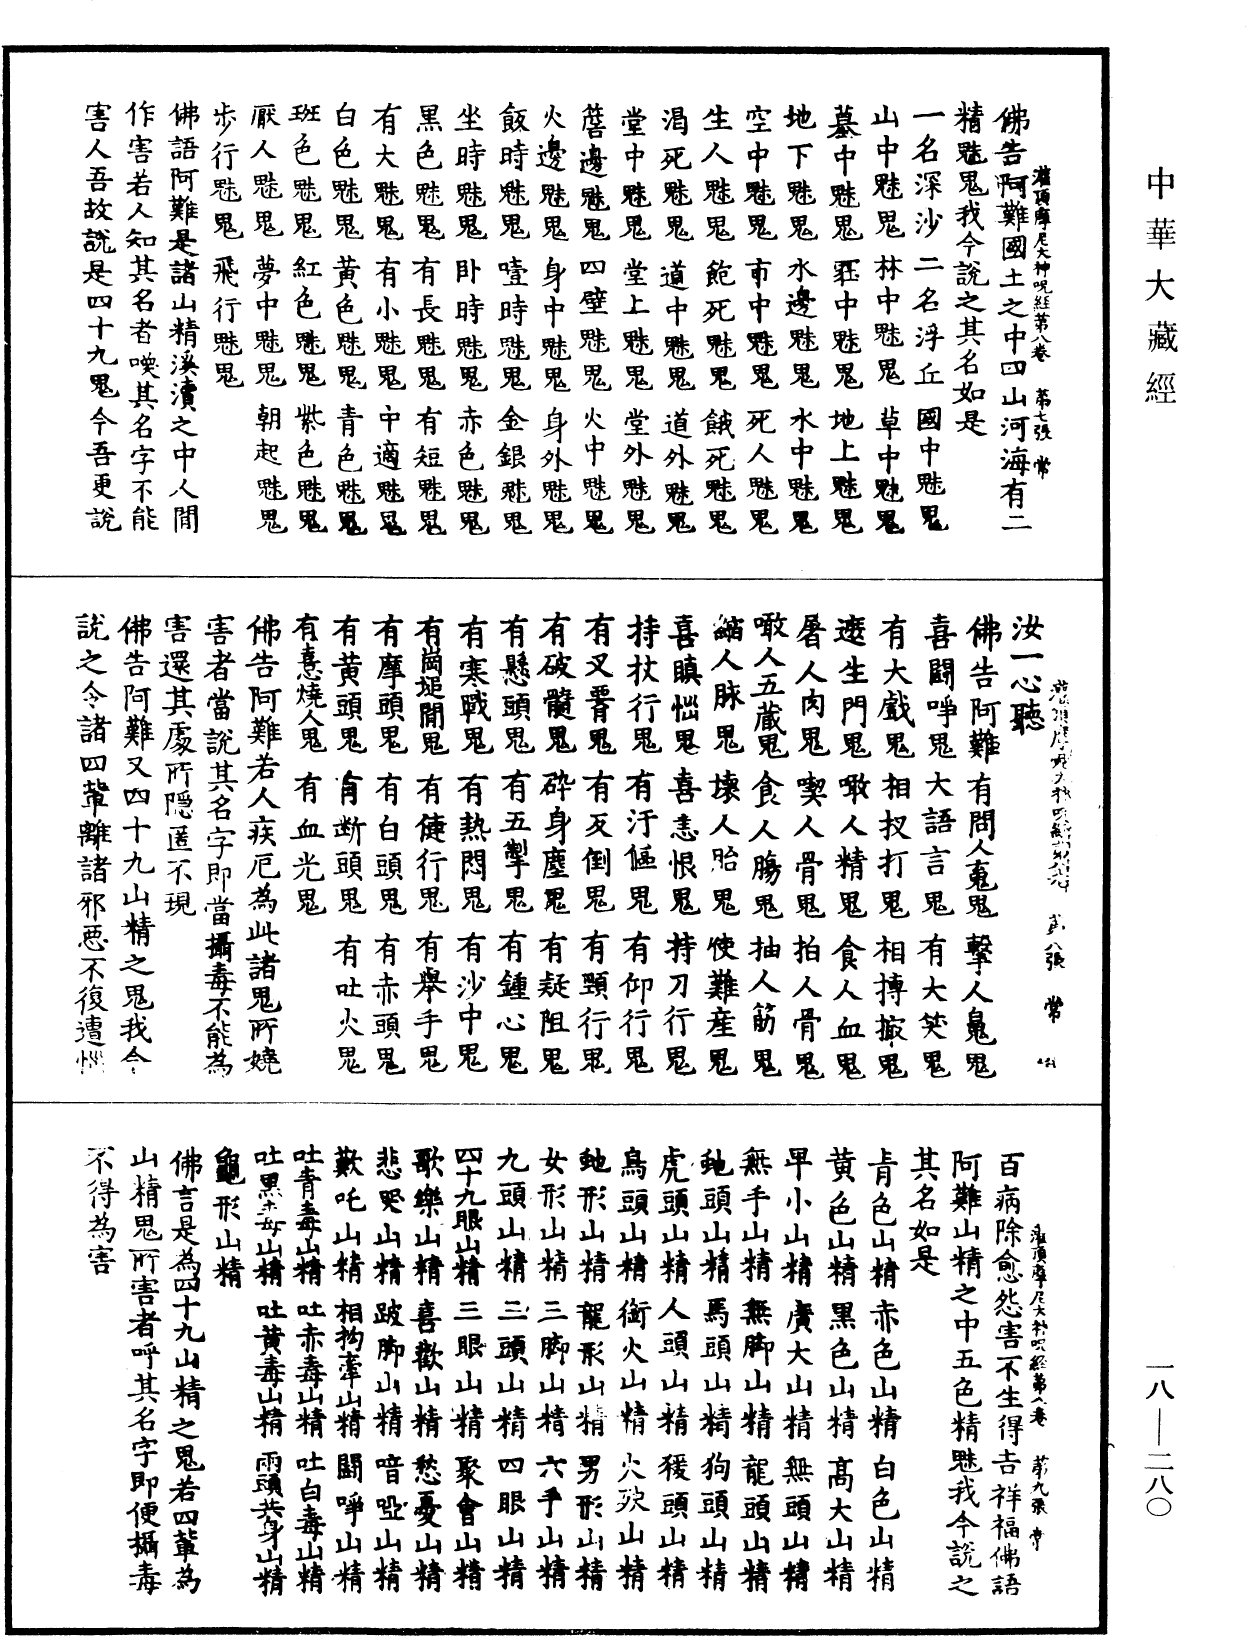 中華大藏經
灌頂摩尼大神呪經第八卷 第七張 常
佛告阿難國土之中四山河海有二
精魅鬼我今說之其名如是
一名深沙 二名浮丘 國中魅鬼
山中魅鬼 林中魅鬼 草中魅鬼
墓中魅鬼 塚中魅鬼 地上魅鬼
地下魅鬼 水邊魅鬼 水中魅鬼
空中魅鬼 市中魅鬼 死人魅鬼
生人魅鬼 飽死魅鬼 餓死魅鬼
渴死魅鬼 道中魅鬼 道外魅鬼
堂中魅鬼 堂上魅鬼 堂外魅鬼
邊魅鬼 四壁魅鬼 火中魅鬼
火邊魅鬼 身中魅鬼 身外魅鬼
飯時魅鬼 噎時魅鬼 金銀魅鬼
坐時魅鬼 卧時魅鬼 赤色魅鬼
黑色魅鬼 有長魅鬼 有短魅鬼
有大魅鬼 有小魅鬼 中適魅鬼
白色魅鬼 黃色魅鬼 青色魅鬼
斑色魅鬼 紅色魅鬼 紫色魅鬼
厭人魅鬼 夢中魅鬼 朝起魅鬼
步行魅鬼 飛行魅鬼
佛語阿難是諸山精溪瀆之中人間
作害若人知其名者喚其名字不能
害人吾故說是四十九鬼今吾更說
第八張 常
汝一心聽
佛告阿難 有問人鬼 擊人鬼
喜鬪諍鬼 大語言鬼 有大笑鬼
有大戲鬼 相扠打鬼 相摶撮鬼
遮生門鬼 噉人精鬼 食人血鬼
屠人肉鬼 喫人骨鬼 拍人骨鬼
噉人五藏鬼 食人腸鬼 抽人筋鬼
縮人脉鬼 壞人胎鬼 使難產鬼
喜瞋惱鬼 喜恚恨鬼 持刀行鬼
持杖行鬼 有汙傴鬼 有仰行鬼
有叉鬼 有反倒鬼 有行鬼
有破髓鬼 碎身塵鬼 有疑阻鬼
有懸頭鬼 有五掣鬼 有鍾心鬼
有寒戰鬼 有熱悶鬼 有沙中鬼
有崗堆間鬼 有健行鬼 有舉手鬼
有摩頭鬼 有白頭鬼 有赤頭鬼
有黃頭鬼 有断頭鬼 有吐火鬼
有憙燒人鬼 有血光鬼
佛告阿難若人疾厄為此諸鬼所嬈
害者當說其名字即當攝毒不能為
害還其處所隱匿不現
佛告阿難又四十九山精之鬼我今
說之令諸四輩離諸邪惡不復遭惱
灌頂摩尼大神呪經第八卷 第九張 常
百病除愈怨害不生得吉祥福佛語
阿難山精之中五色精魅我今說之
其名如是
青色山精 赤色山精 白色山精
黃色山精 黑色山精 高大山精
早小山精 廣大山精 無頭山精
無手山精 無脚山精 龍頭山精
虵頭山精 馬頭山精 狗頭山精
虎頭山精 人頭山精 猨頭山精
鳥頭山精 銜火山精 火殃山精
虵形山精 龍形山精 男形山精
女形山精 三脚山精 六手山精
九頭山精 三頭山精 四眼山精
四十九眼山精 三眼山精 聚會山精
歌樂山精 喜歡山精 愁憂山精
悲哭山精 跛脚山精 喑啞山精
歎吒山精 相拘牽山精 鬪諍山精
吐青毒山精 吐赤毒山精 吐白毒山精
吐黑毒山精 吐黃毒山精 兩頭共身山精
龜形山精
佛言是為四十九山精之鬼若四輩為
山精鬼所害者呼其名字即便攝毒
不得為害
一八—二八〇